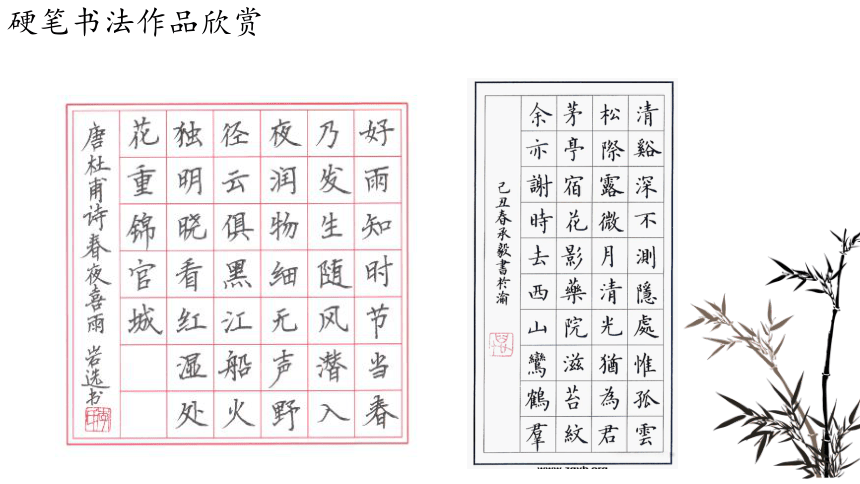 硬笔书法作品欣赏
好雨知时节当春
乃发生随风潜入
夜润物细无声野
径云俱黑江船火
独明晓看红湿处
花重锦官城
唐杜甫诗春夜喜雨 岩选书
清谿深不測隱處惟孤雲
松際露微月清光猶為君
茅亭宿花影藥院滋苔紋
余亦謝時去西山鸞鶴羣
己丑春承毅書於渝